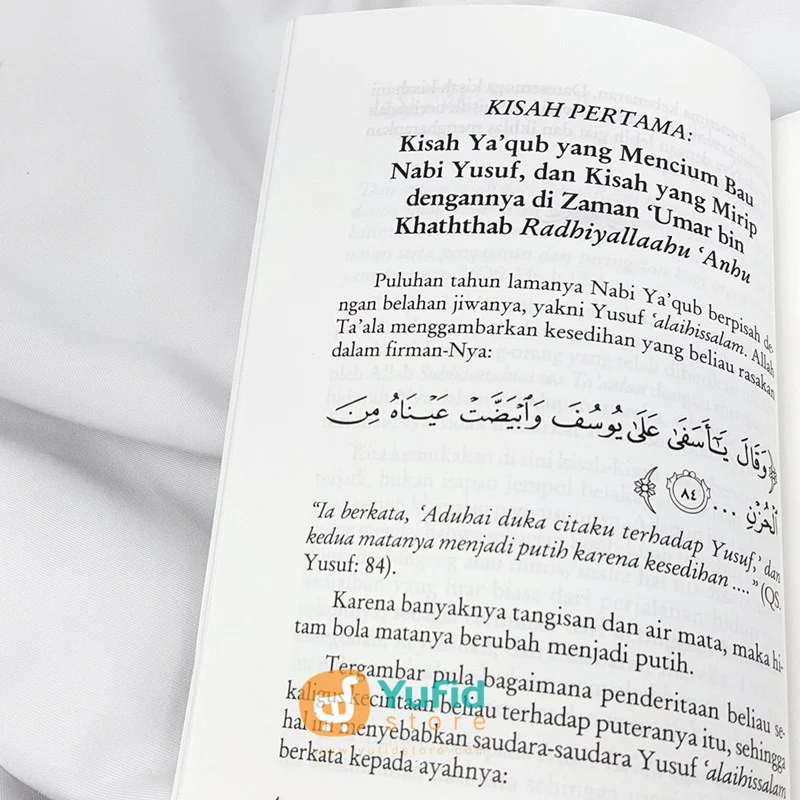 KISAH PERTAMA:
Kisah Ya’qub yang Mencium Bau
Nabi Yusuf, dan Kisah yang Mirip
dengannya di Zaman ‘Umar bin
Khaththab Radhiyallaahu ‘Anhu
Puluhan tahun lamanya Nabi Ya’qub berpisah de-
ngan belahan jiwanya, yakni Yusuf ‘alaihissalam. Allah
Ta’ala menggambarkan kesedihan yang beliau rasakan
dalam firman-Nya:
﴿وَقَالَ يَٰٓأَسَفَىٰ عَلَىٰ يُوسُفَ وَٱبْيَضَّتْ عَيْنَاهُ مِنَ
ٱلْحُزْنِ ... ٨٤ ﴾
“Ia berkata, ‘Aduhai duka citaku terhadap Yusuf,’ dan
kedua matanya menjadi putih karena kesedihan ....” (QS.
Yusuf: 84).
Karena banyaknya tangisan dan air mata, maka hi-
tam bola matanya berubah menjadi putih.
Tergambar pula bagaimana penderitaan beliau se-
kaligus kecintaan beliau terhadap puteranya itu, sehingga
hal ini menyebabkan saudara-saudara Yusuf ‘alaihissalam
berkata kepada ayahnya:
Yufid
store
www.yufidstore.com